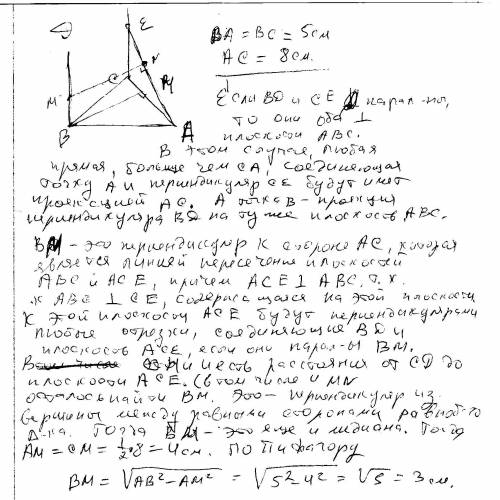 D
E
N
C
M
B
A
BA = BC = 5см
AC = 8см.
Если BD и CE парал-ны,
то они оба ⊥
плоскости ABC.
В этом случае, любая
прямая, больше чем CA, соединяющая
точку A и перпендикуляр CE будут имет
проекцией AC. А точка B - проекция
перпендикуляра BD на ту же плоскость ABC.
BM - это перпендикуляр к стороне AC, которая
является линией пересечения плоскостей
ABC и ACE, причем ACE ⊥ ABC, т.к.
ABC ⊥ CE, содержащаяся на этой плоскости
К этой плоскости ACE будут перпендикулярами
любые отрезки, соединяющие BD и
плоскость ACE, если они парал-ны BM.
и есть расстояния от CD до
плоскости ACE. (в том числе и MN
осталось найти BM. Это - перпендикуляр из
вершины между равными сторонами равноб-го
Δ-ка. Тогда BM - это еще и медиана. Тогда
AM = CM = 1/2·8 = 4см. По Пифагору
BM = √AB² - AM² = √5² 4² = √5 = 3см.